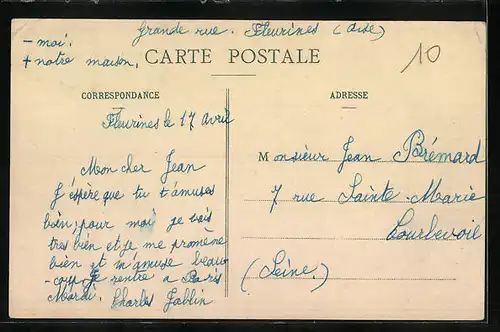 Grande rue. Fleurines (Oise)
- moi.
+ notre maison.
10
CARTE POSTALE
CORRESPONDANCE
ADRESSE
Fleurines le 17 avril
Mon cher Jean
J'éspère que tu t'amuses
bien, pour moi je vais
tres bien et je me promène
bien et m'amuse beau-
coup je rentre a Paris
Mardi. Charles Jablin
Monsieur Jean Brémard
7 rue Sainte-Marie
Courbevoie
(Seine.)